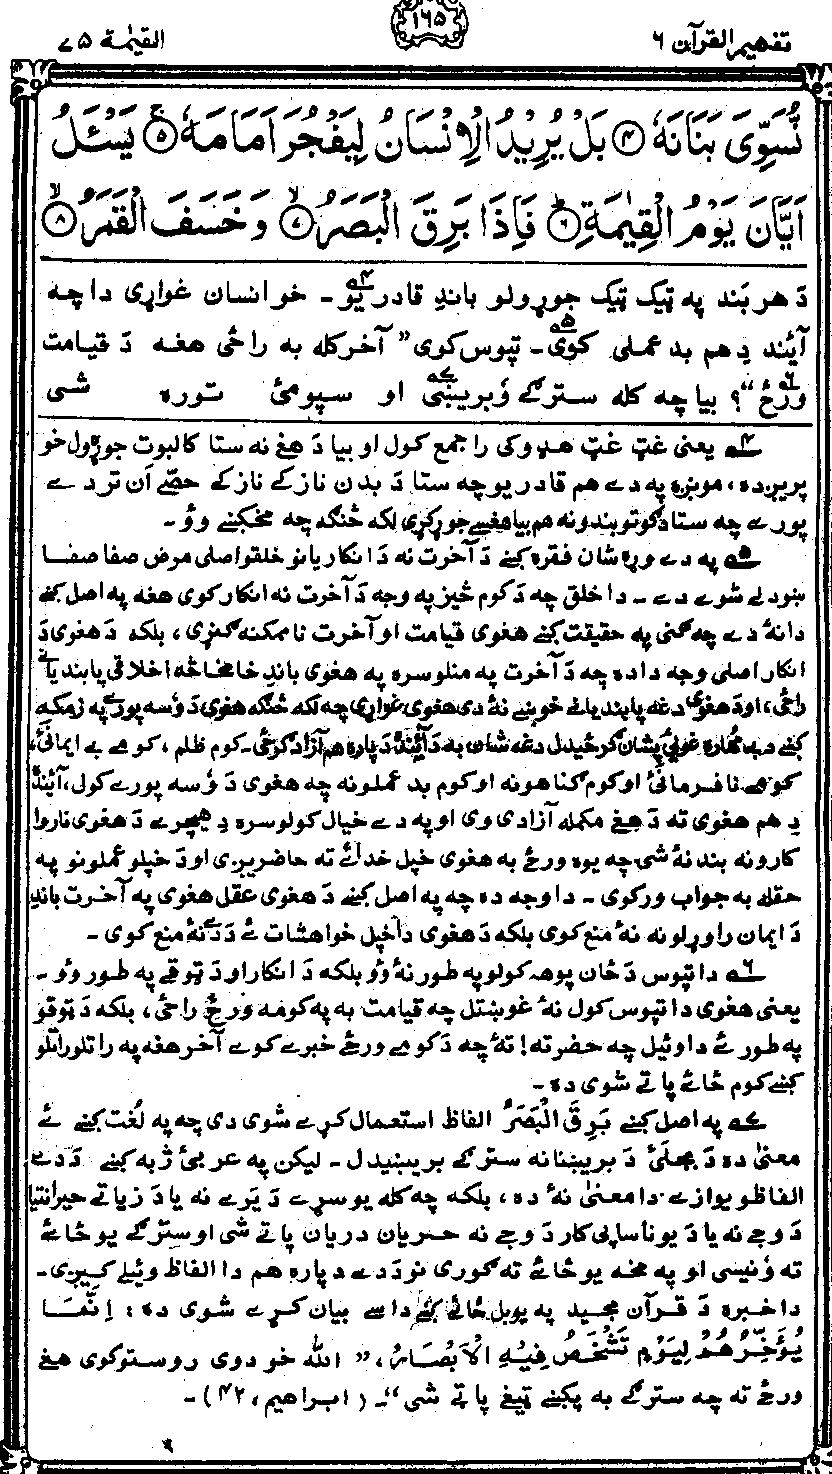 تفهيم القرآن ۶
۱۶۵
القیٰمة ۷۵
نُّسَوِّيَ بَنَانَهٗ ﴿۴﴾ بَلْ يُرِيْدُ الْاِنْسَانُ لِيَفْجُرَ اَمَامَهٗ ﴿۵﴾ يَسْـَٔلُ
اَيَّانَ يَوْمُ الْقِيٰمَةِ ﴿۶﴾ فَاِذَا بَرِقَ الْبَصَرُ ﴿۷﴾ وَخَسَفَ الْقَمَرُ ﴿۸﴾
دَ هر بَند په ټيک ټيک جوړولو باندِ قادر يو ۴ـ خو انسان غواړی دا چه
آئيند دِ هم بد عملی کوی ۵ـ تپوس کوی ”آخر کله به راځی هغه دَ قيامت
ورځ“؟ ۶ بيا چه کله سترګے وَبريښی ۷ او سپوږمئ توره شی
۴ يعنی غټ غټ هډوکی را جمع کول او بيا دَ هغے نه ستا کالبوت جوړول خو
پريږده، مونږه په دے هم قادر يو چه ستا دَ بدن نازکے نازکے حصّے اَن تر دے
پورے چه ستا دَ ګوتو بندونه هم بيا هغسے جوړ کړی لکه څنګه چه مخکښے وؤ ـ
۵ په دے وړه شان فقره کښے دَ آخرت نه دَ انکار يانو خلقو اصلی مرض صفا صفا
ښودلے شوے دے ـ دا خلق چه دَ کوم څيز په وجه دَ آخرت نه انکار کوی هغه په اصل کښے
دا نهٔ دے چه ګنی په حقيقت کښے هغوی قيامت او آخرت ناممکنه ګنړی، بلکه دَ هغوی دَ
انکار اصلی وجه دا ده چه دَ آخرت په منلو سره په هغوی باندِ خامخا څه اخلاقی پابنديانے
راځی، او دَ هغوی دغه پابنديانے خوښے نهٔ دی هغوی غواړی چه لکه څنګه هغوی دَ وٗسه پورے په زمکه
کښے دبے مهاره غوائی پشان ګرځيدل دغه شان به دَ آئينده دَ پاره هم آزاد ګرځی ـ کوم ظلم، کومے بے ايمانئ،
کومے نافرمانئ او کوم ګناهونه او کوم بد عملونه چه هغوی دَ وٗسه پورے کول، آئينده
دِ هم هغوی ته دَ هغے مکمله آزادی وی او په دے خيال کولو سره دِ هيچرے دَ هغوی ناروا
کارونه بند نهٔ شی چه يوه ورځ به هغوی خپل خدائے ته حاضريږی او دَ خپلو عملونو په
حقله به جواب ورکوی ـ دا وجه ده چه په اصل کښے دَ هغوی عقل هغوی په آخرت باندِ
دَ ايمان راوړلو نه نهٔ منع کوی بلکه دَ هغوی دا خپل خواهشات ئے دَ دے نه منع کوی ـ
۶ دا تپوس دَ ځان پوهه کولو په طور نهٔ وٗو بلکه دَ انکار او دَ ټوقے په طور وٗو ـ
يعنی هغوی دا تپوس کول نهٔ غوښتل چه قيامت به په کومه ورځ راځی، بلکه دَ ټوقو
په طور ئے دا وئيل چه حضرته! تهٔ چه دَ کومے ورځے خبرے کوے آخر هغه په را تلو راتلو
کښے کوم ځائے پاتے شوی ده ـ
۷ په اصل کښے بَرِقَ الْبَصَرُ الفاظ استعمال کړے شوی دی چه په لُغت کښے ئے
معنیٰ ده دَ بجلئ دَ بريښنا نه سترګے بريښيدل ـ ليکن په عربئ ژبه کښے دَ دے
الفاظو يوازے دا معنیٰ نهٔ ده، بلکه چه کله يو سړے دَ يَرے نه يا دَ زياتے حيرانتيا
دَ وجے نه يا دَ يو ناساپی کار دَ وجے نه حيران دريان پاتے شی او سترګے يو ځائے
ته وٗنيسی او په مخه يو ځائے ته ګوری نو دَ دے دپاره هم دا الفاظ وئيلے کيږی ـ
دا خبره دَ قرآن مجيد په يو بل ځائے کښے داسے بيان کړے شوی ده: اِنَّمَا
يُؤَخِّرُهُمْ لِيَوْمٍ تَشْخَصُ فِيْهِ الْاَبْصَارُ، ”الله خو دوی روستو کوی هغے
ورځے ته چه سترګے به پکښے تيغے پاتے شی“ـ (ابراهيم، ۴۲) ـ